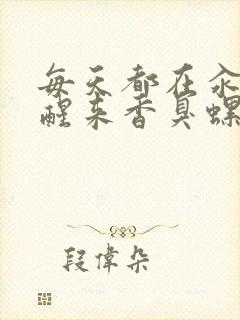 每天都在
醒来香臭螺
段偉朵